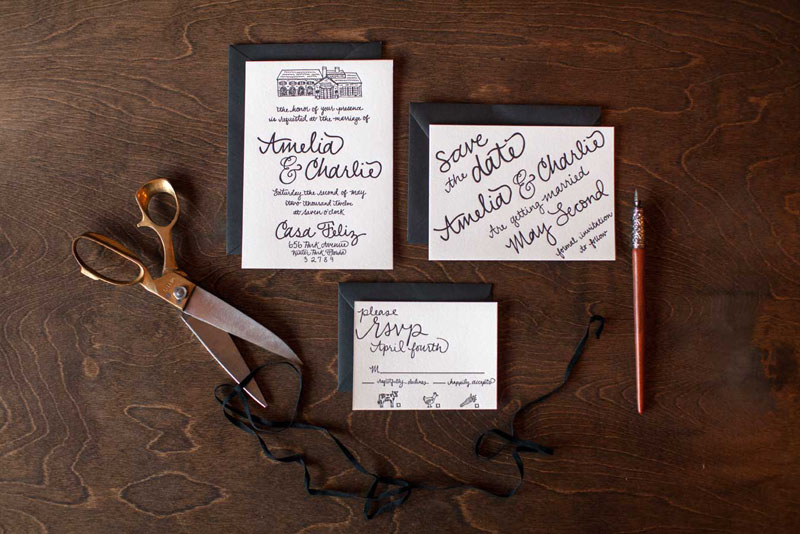 the honor of your presence
is requested at the marriage of
Amelia
& Charlie
Saturday, the second of may
two thousand twelve
at seven o'clock
Casa Feliz
656 Park Avenue
Winter Park Florida
32789
Save
the date
Amelia & Charlie
are getting married
May Second
formal invitation
to follow
please
rsvp
April fourth
M
regretfully declines happily accepts